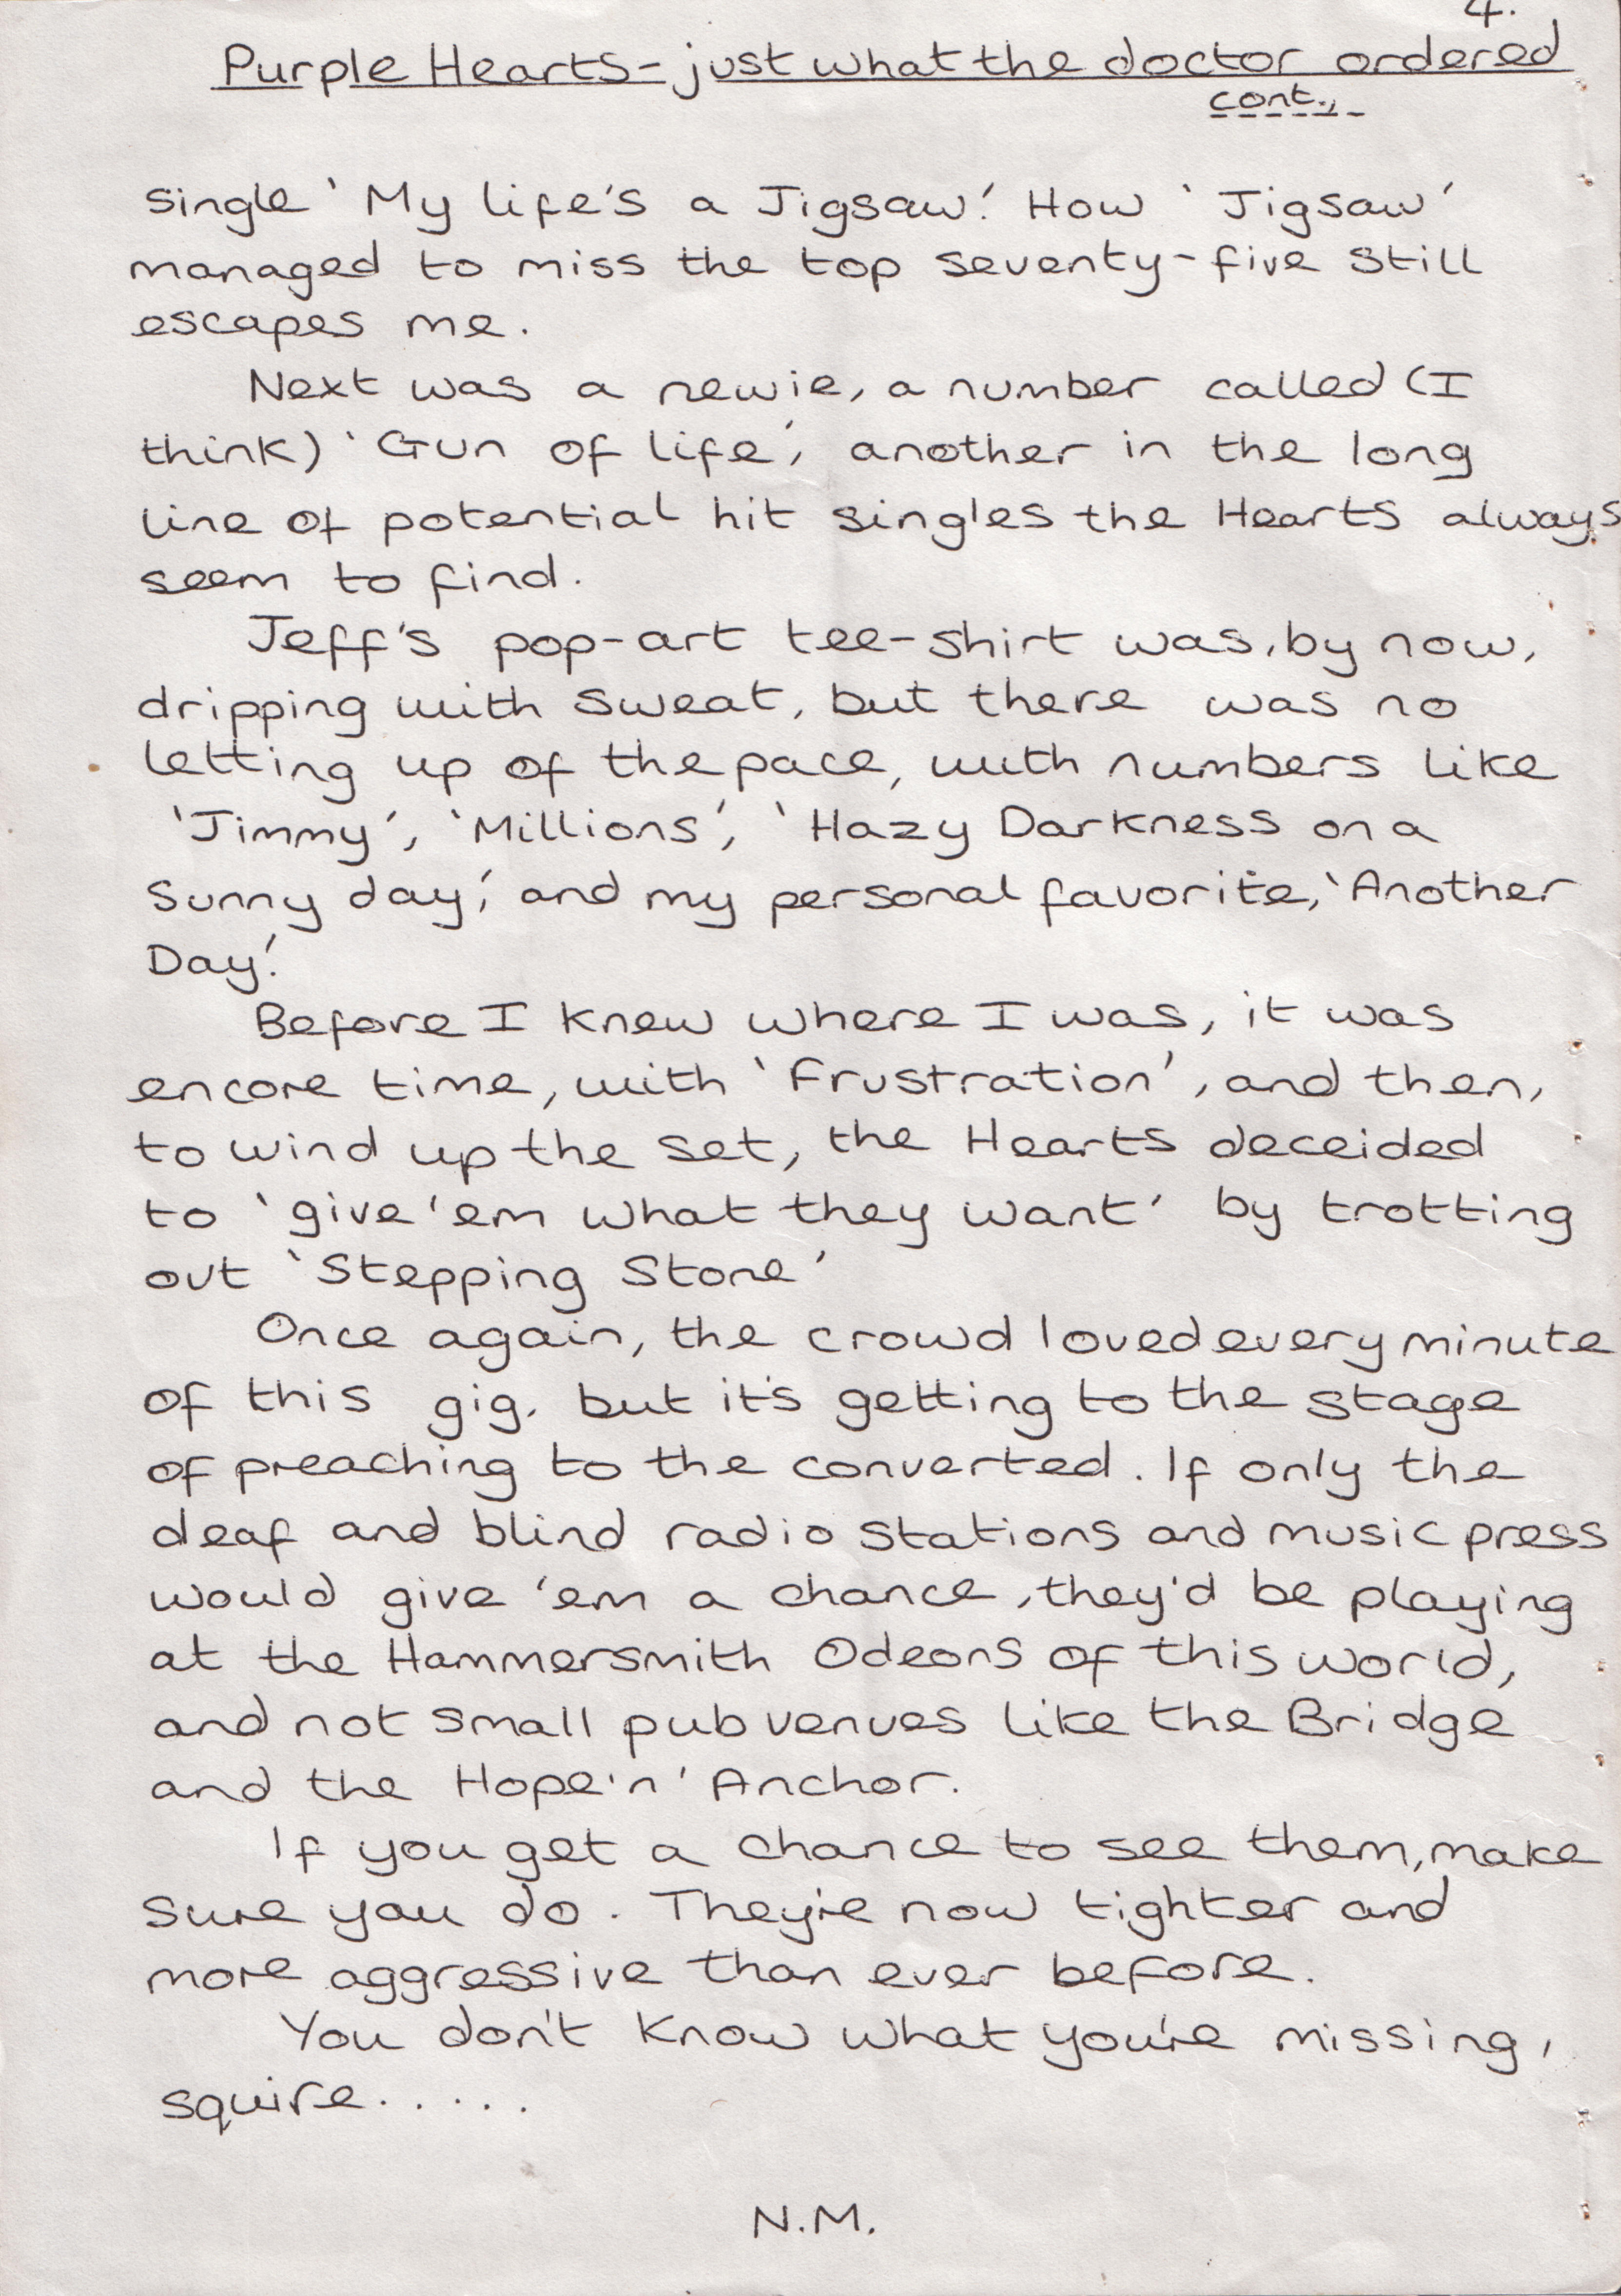 4.
Purple Hearts - just what the doctor ordered
cont.,
single 'My life's a Jigsaw'. How 'Jigsaw'
managed to miss the top seventy-five still
escapes me.
Next was a newie, a number called (I
think) 'Gun of life', another in the long
line of potential hit singles the Hearts always
seem to find.
Jeff's pop-art tee-shirt was, by now,
dripping with sweat, but there was no
letting up of the pace, with numbers like
'Jimmy', 'Millions', 'Hazy Darkness on a
Sunny day', and my personal favorite, 'Another
Day'.
Before I knew where I was, it was
encore time, with 'Frustration', and then,
to wind up the set, the Hearts deceided
to 'give 'em what they want' by trotting
out 'Stepping Stone'
Once again, the crowd loved every minute
of this gig, but it's getting to the stage
of preaching to the converted. If only the
deaf and blind radio stations and music press
would give 'em a chance, they'd be playing
at the Hammersmith Odeons of this world,
and not small pub venues like the Bridge
and the Hope 'n' Anchor.
If you get a chance to see them, make
sure you do. They're now tighter and
more aggressive than ever before.
You don't know what you're missing,
squire.....
N.M.